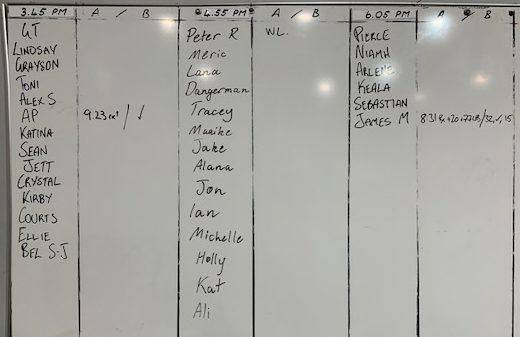 3.45 PM A / B
GT
LINDSAY
GRAYSON
TONI
ALEX S
AP 9.23 rx1 / ✓
KATINA
SEAN
JETT
CRYSTAL
KIRBY
COURTS
ELLIE
BEL S-J
4.55 PM A / B
Peter R WL.
Meric
Lana
Dangerman
Tracey
Maaike
Jake
Alana
Jon
Ian
Michelle
Holly
Kat
Ali
6.05 PM A B
PIERCE
NIAMH
ARLENE
KEALA
SEBASTIAN
JAMES M